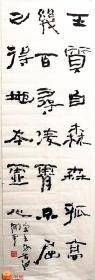 天質自森森孤高
幾百尋凌霄不屈
己得地本虛心